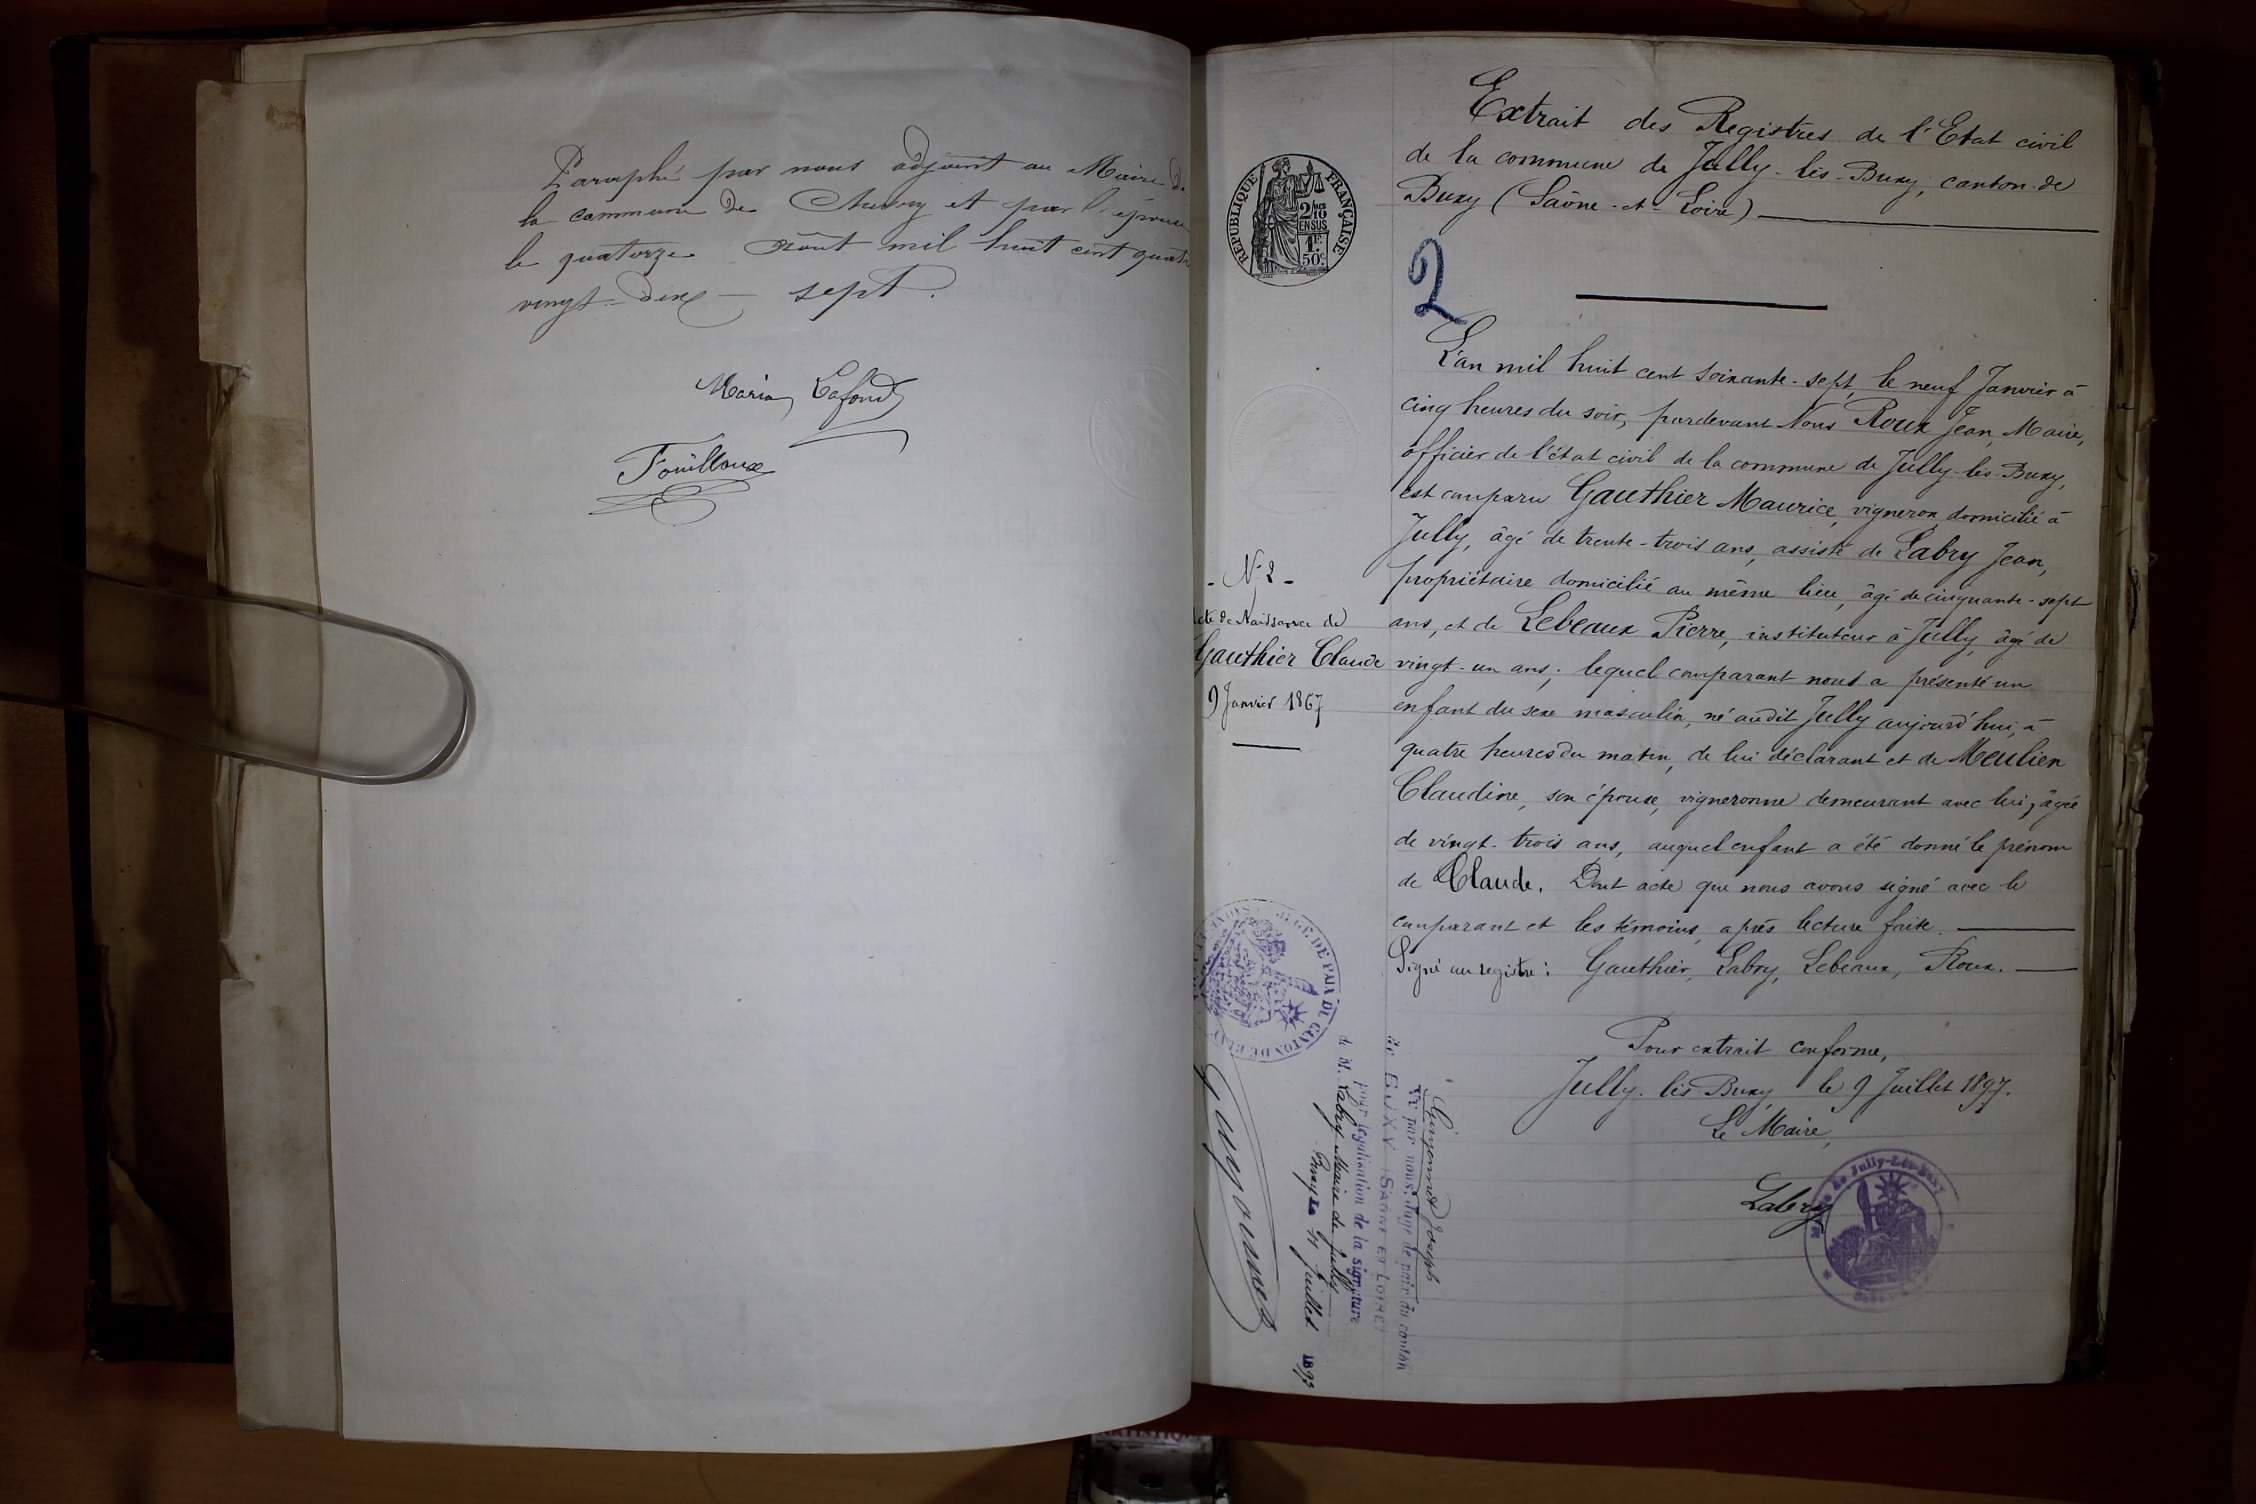 Paraphé par nous adjoint au Maire de
la commune de et par l'épouse
le quatorze Août mil huit cent quatre
vingt-dix-sept.
Maria Lafond
Fouilloux
Extrait des Registres de l'Etat civil
de la commune de Jully-les-Buxy, canton de
Buxy (Saône-et-Loire)
REPUBLIQUE FRANÇAISE
2/10 EN SUS
1F. 50c.
2
- N° 2 -
Acte de Naissance de
Gauthier Claude
9 Janvier 1867
L'an mil huit cent soixante-sept, le neuf Janvier à
cinq heures du soir, pardevant Nous Roux Jean, Maire,
officier de l'état civil de la commune de Jully-les-Buxy,
est comparu Gauthier Maurice, vigneron domicilié à
Jully, âgé de trente-trois ans, assisté de Labry Jean,
propriétaire domicilié au même lieu, âgé de cinquante-sept
ans, et de Lebeaux Pierre, instituteur à Jully, âgé de
vingt-un ans; lequel comparant nous a présenté un
enfant du sexe masculin, né audit Jully aujourd'hui, à
quatre heures du matin, de lui déclarant et de Meulien
Claudine, son épouse, vigneronne demeurant avec lui, âgée
de vingt-trois ans, auquel enfant a été donné le prénom
de Claude. Dont acte que nous avons signé avec le
comparant et les témoins, après lecture faite.
Signé au registre: Gauthier, Labry, Lebeaux, Roux.
Pour extrait conforme,
Jully-les-Buxy le 9 Juillet 1897.
Le Maire,
Labry
Mairie de Jully-Lès-Buxy
JUGE DE PAIX DU CANTON DE BUXY
Guyonnot Joseph
Vu par nous, Juge de paix du canton
de BUXY (SAÔNE ET LOIRE)
pour légalisation de la signature
de M. Labry Maire de Jully
Buxy Le 11 Juillet 1897
Guyonnot